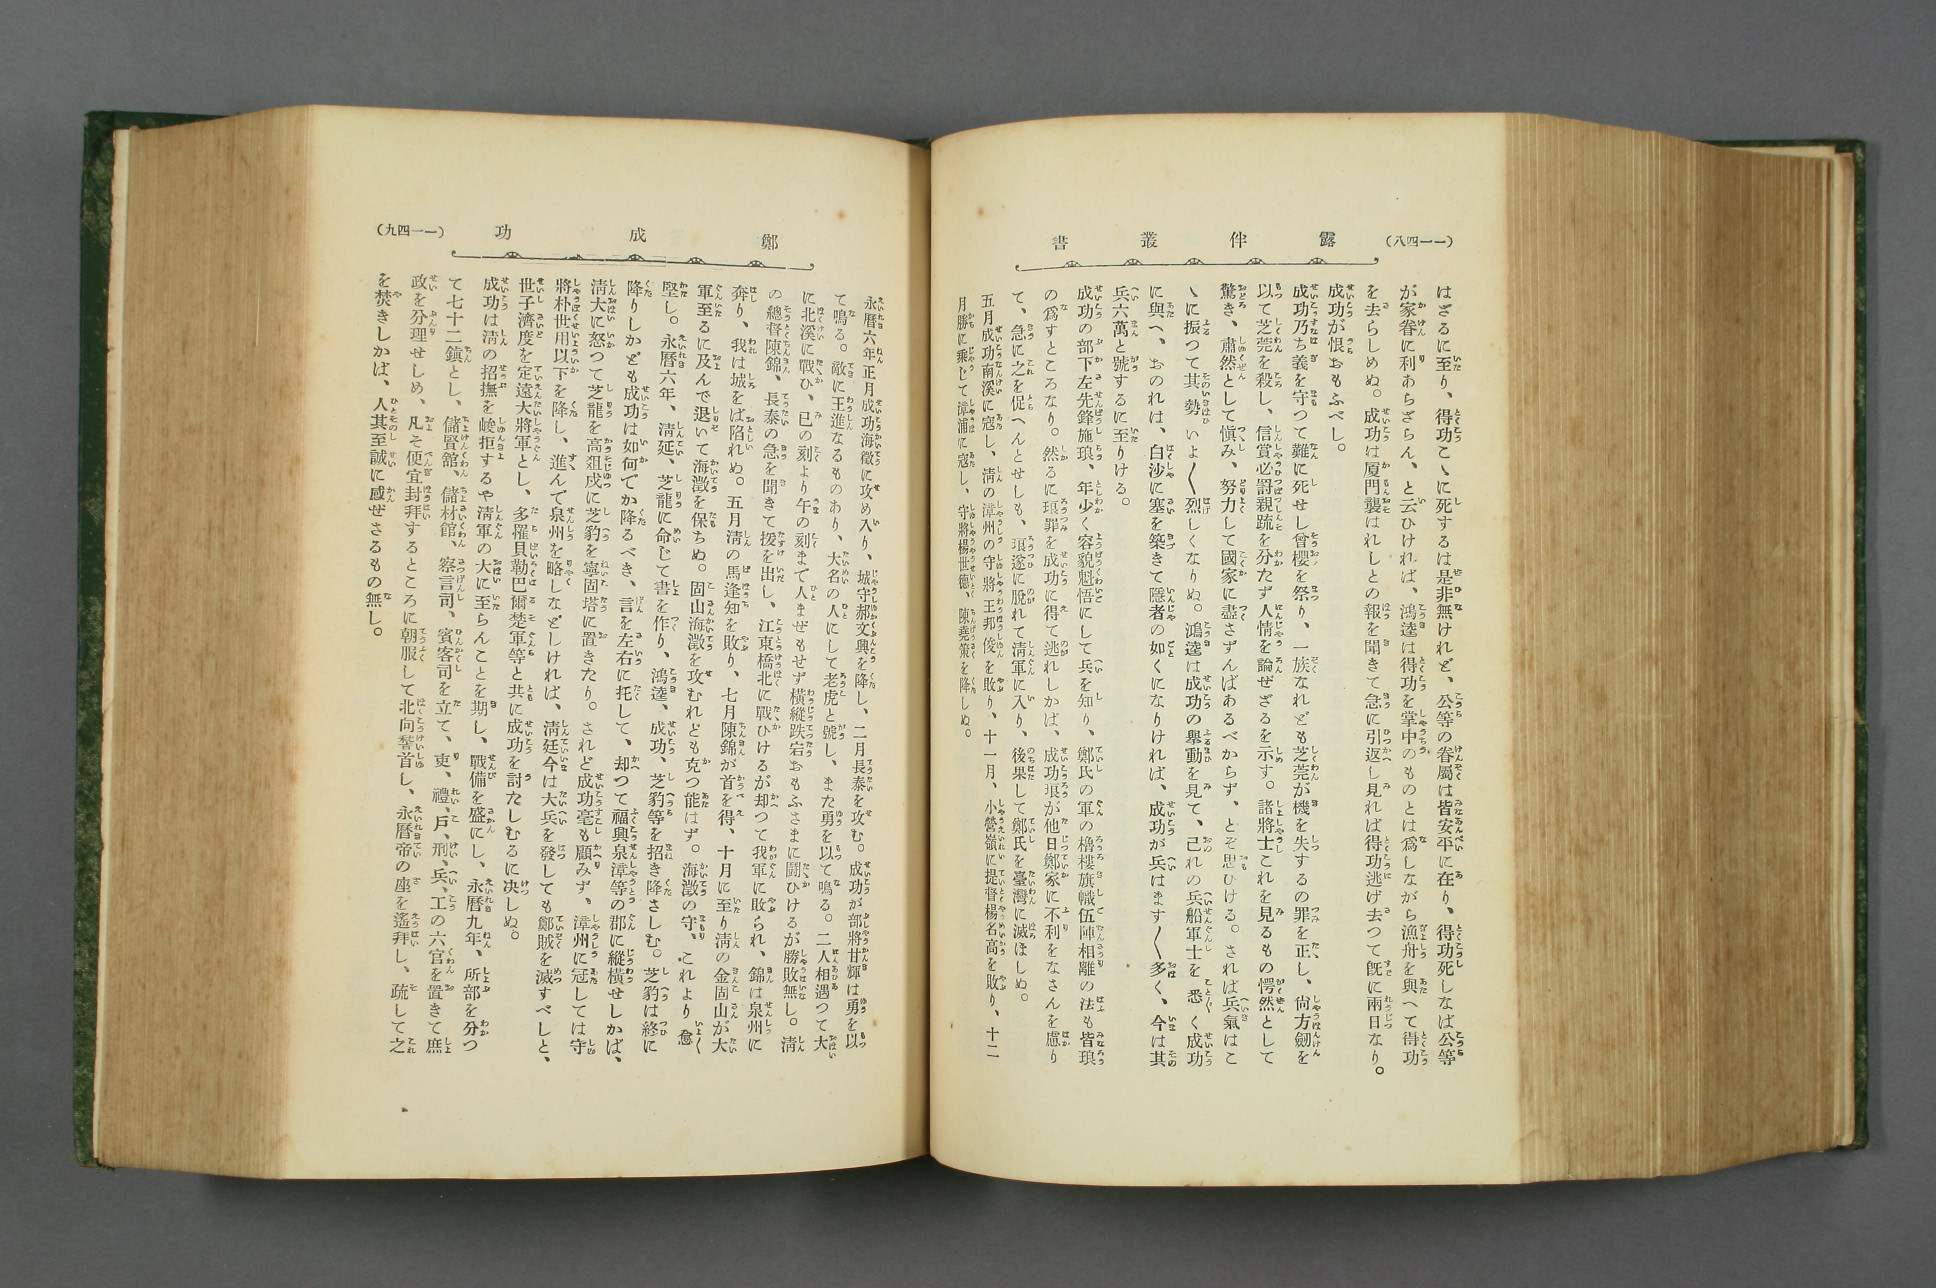 (一一四八)
露伴叢書
はざるに至り、得功こゝに死するは是非無けれど、公等の眷屬は皆安平に在り、得功死しなば公等
が家眷に利あらざらん、と云ひければ、鴻逵は得功を掌中のものとは爲しながら漁舟を與へて得功
を去らしめぬ。成功は厦門襲はれしとの報を聞きて急に引返し見れば得功逃げ去つて既に兩日なり。
成功が恨おもふべし。
成功乃ち義を守つて難に死せし曾櫻を祭り、一族なれども芝莞が機を失するの罪を正し、尙方劒を
以て芝莞を殺し、信賞必罰親疏を分たず人情を論ぜざるを示す。諸將士これを見るもの愕然として
驚き、肅然として愼み、努力して國家に盡さずんばあるべからず、とぞ思ひける。されば兵氣はこ
ゝに振つて其勢いよ〳〵烈しくなりぬ。鴻逵は成功の擧動を見て、己れの兵船軍士を悉く成功
に與へ、おのれは、白沙に塞を築きて隱者の如くになりければ、成功が兵はます〳〵多く、今は其
兵六萬と號するに至りける。
成功の部下左先鋒施琅、年少く容貌魁悟にして兵を知り、鄭氏の軍の櫓樓旗幟伍陣相離の法も皆琅
の爲すところなり。然るに琅罪を成功に得て逃れしかば、成功琅が他日鄭家に不利をなさんを慮り
て、急に之を促へんとせしも、琅遂に脱れて淸軍に入り、後果して鄭氏を臺灣に滅ぼしぬ。
五月成功南溪に寇し、淸の漳州の守將王邦俊を敗り、十一月、小營嶺に提督楊名高を敗り、十二
月勝に乘じて漳浦に寇し、守將楊世德、陳堯策を降しぬ。
(一一四九)
鄭成功
永曆六年正月成功海徵に攻め入り、城守郝文興を降し、二月長泰を攻む。成功が部將甘輝は勇を以
て鳴る。敵に王進なるものあり、大名の人にして老虎と號し、また勇を以て鳴る。二人相遇つて大
に北溪に戰ひ、巳の刻より午の刻まで人まぜもせず橫縱跌宕おもふさまに鬪ひけるが勝敗無し。淸
の總督陳錦、長泰の急を聞きて援を出し、江東橋北に戰ひけるが却つて我軍に敗られ、錦は泉州に
奔り、我は城をば陷れぬ。五月淸の馬逢知を敗り、七月陳錦が首を得、十月に至り淸の金固山が大
軍至るに及んで退いて海澂を保ちぬ。固山海澂を攻むれども克つ能はず。海澂の守、これより愈〻
堅し。永曆六年、淸延、芝龍に命じて書を作り、鴻逵、成功、芝豹等を招き降さしむ。芝豹は終に
降りしかども成功は如何でか降るべき、言を左右に托して、却つて福興泉漳等の郡に縱橫せしかば、
淸大に怒つて芝龍を高俎戍に芝豹を寧固塔に置きたり。されど成功毫も顧みず、漳州に冦しては守
將朴世用以下を降し、進んで泉州を略しなどしければ、淸廷今は大兵を發しても鄭賊を滅すべしと、
世子濟度を定遠大將軍とし、多羅貝勒巴爾楚軍等と共に成功を討たしむるに決しぬ。
成功は淸の招撫を峻拒するや淸軍の大に至らんことを期し、戰備を盛にし、永曆九年、所部を分つ
て七十二鎭とし、儲賢舘、儲材館、察言司、賓客司を立て、吏、禮、戶、刑、兵、工の六官を置きて庶
政を分理せしめ、凡そ便宜封拜するところに朝服して北向稽首し、永曆帝の座を遙拜し、疏して之
を焚きしかば、人其至誠に感ぜさるもの無し。